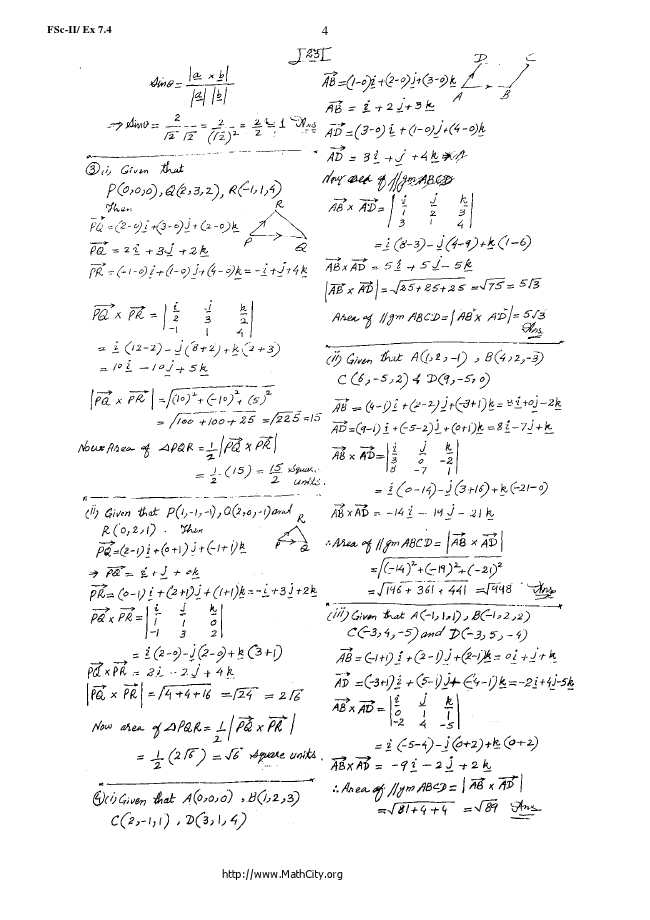 FSc-II/ Ex 7.4
4
[23]
sinθ = |a × b| / |a| |b|
⇒ sinθ = 2/√2 √2 = 2/(√2)² = 2/2 = 1 Ans
③ i, Given that
P(0,0,0), Q(2,3,2), R(-1,1,4)
Then
R
P
Q
PQ = (2-0)i + (3-0)j + (2-0)k
PQ = 2i + 3j + 2k
PR = (-1-0)i + (1-0)j + (4-0)k = -i + j + 4k
PQ × PR = | i j k |
| 2 3 2 |
| -1 1 4 |
= i(12-2) - j(8+2) + k(2+3)
= 10i - 10j + 5k
|PQ × PR| = √(10)² + (-10)² + (5)²
= √100+100+25 = √225 = 15
Now Area of ΔPQR = 1/2 |PQ × PR|
= 1/2 . (15) = 15/2 square units.
(ii) Given that P(1,-1,-1), Q(2,0,-1) and
R(0,2,1). Then
R
P
Q
PQ = (2-1)i + (0+1)j + (-1+1)k
⇒ PQ = i + j + 0k
PR = (0-1)i + (2+1)j + (1+1)k = -i + 3j + 2k
PQ × PR = | i j k |
| 1 1 0 |
| -1 3 2 |
= i(2-0) - j(2-0) + k(3+1)
PQ × PR = 2i - 2j + 4k
|PQ × PR| = √4+4+16 = √24 = 2√6
Now area of ΔPQR = 1/2 |PQ × PR|
= 1/2 (2√6) = √6 square units.
④ (i) Given that A(0,0,0), B(1,2,3)
C(2,-1,1), D(3,1,4)
D
C
A
B
AB = (1-0)i + (2-0)j + (3-0)k
AB = i + 2j + 3k
AD = (3-0)i + (1-0)j + (4-0)k
AD = 3i + j + 4k
Now area of //gm ABCD
AB × AD = | i j k |
| 1 2 3 |
| 3 1 4 |
= i(8-3) - j(4-9) + k(1-6)
AB × AD = 5i + 5j - 5k
|AB × AD| = √25+25+25 = √75 = 5√3
Area of //gm ABCD = |AB × AD| = 5√3
Ans
(ii) Given that A(1,2,-1), B(4,2,-3)
C(6,-5,2) & D(9,-5,0)
AB = (4-1)i + (2-2)j + (-3+1)k = 3i + 0j - 2k
AD = (9-1)i + (-5-2)j + (0+1)k = 8i - 7j + k
AB × AD = | i j k |
| 3 0 -2 |
| 8 -7 1 |
= i(0-14) - j(3+16) + k(-21-0)
AB × AD = -14i - 19j - 21k
∴ Area of //gm ABCD = |AB × AD|
= √(-14)² + (-19)² + (-21)²
= √196 + 361 + 441 = √998 Ans
(iii) Given that A(-1,1,1), B(-1,2,2)
C(-3,4,-5) and D(-3,5,-4)
AB = (-1+1)i + (2-1)j + (2-1)k = 0i + j + k
AD = (-3+1)i + (5-1)j + (-4-1)k = -2i + 4j - 5k
AB × AD = | i j k |
| 0 1 1 |
| -2 4 -5 |
= i(-5-4) - j(0+2) + k(0+2)
AB × AD = -9i - 2j + 2k
∴ Area of //gm ABCD = |AB × AD|
= √81+4+4 = √89 Ans
http://www.MathCity.org